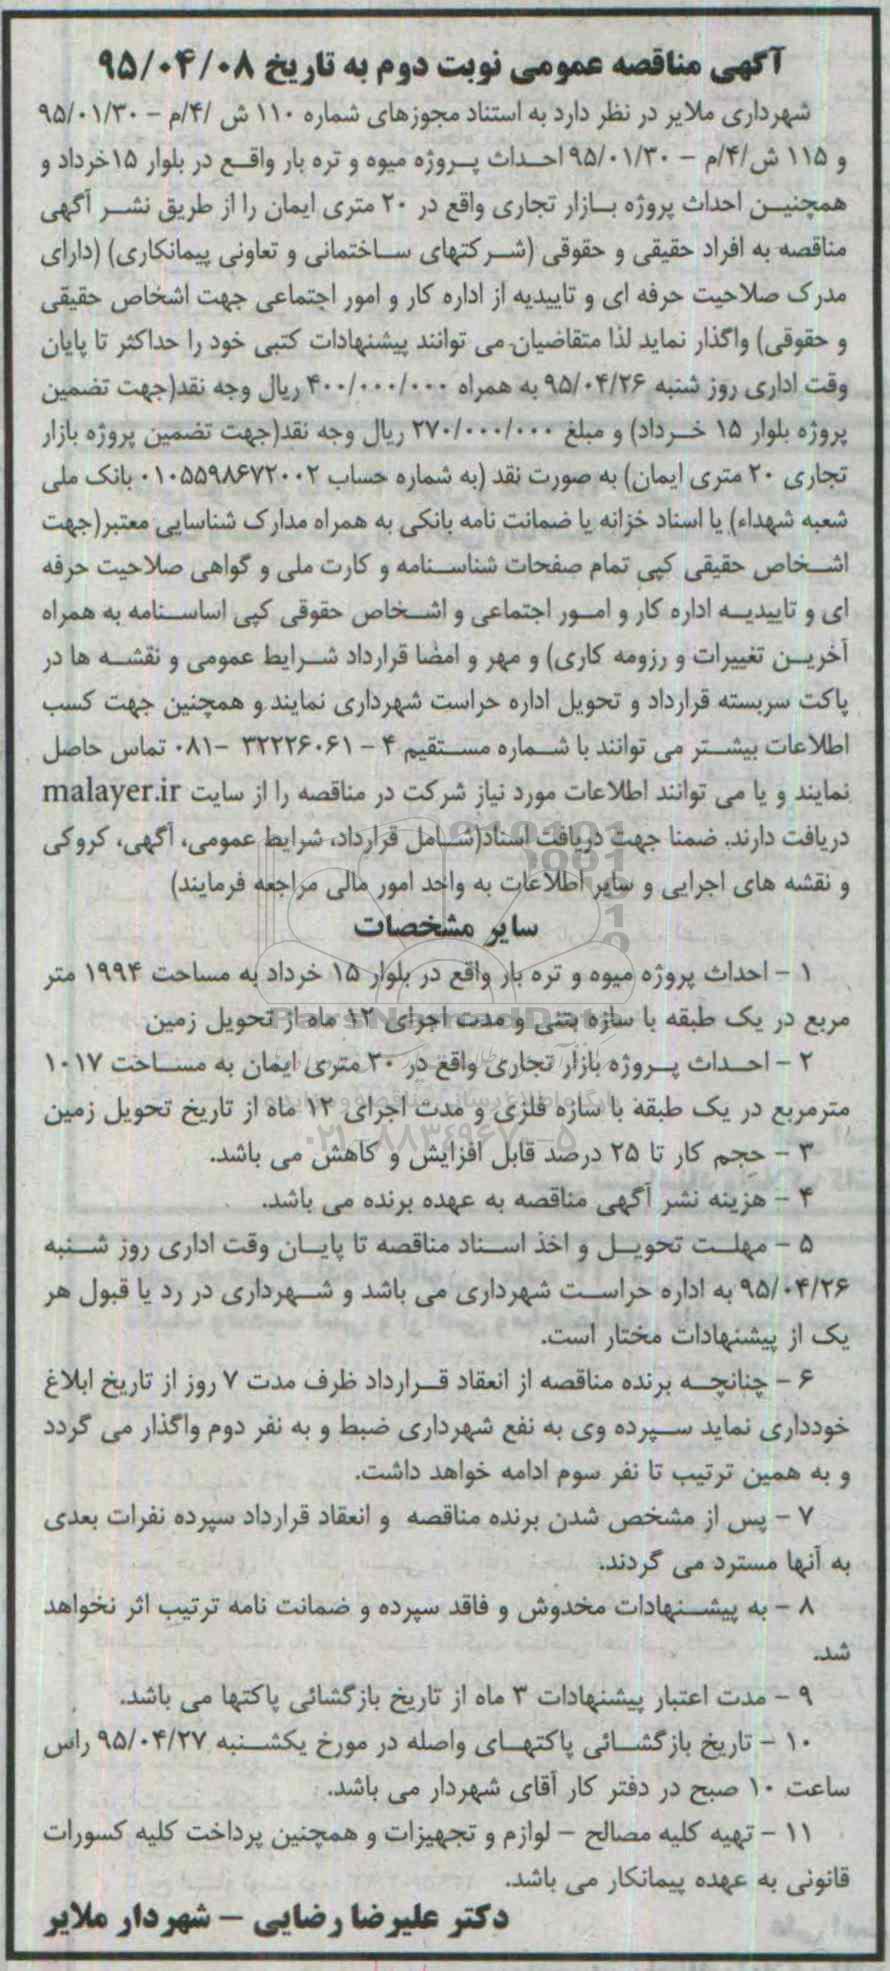 آگهی مناقصه عمومی نوبت دوم به تاریخ ۹۵/۰۴/۰۸
شهرداری ملایر در نظر دارد به استناد مجوزهای شماره ۱۱۰ ش /۴/م – ۹۵/۰۱/۳۰
و ۱۱۵ ش/۴/م – ۹۵/۰۱/۳۰ احداث پروژه میوه و تره بار واقع در بلوار ۱۵خرداد و
همچنین احداث پروژه بازار تجاری واقع در ۲۰ متری ایمان را از طریق نشر آگهی
مناقصه به افراد حقیقی و حقوقی (شرکتهای ساختمانی و تعاونی پیمانکاری) (دارای
مدرک صلاحیت حرفه ای و تاییدیه از اداره کار و امور اجتماعی جهت اشخاص حقیقی
و حقوقی) واگذار نماید لذا متقاضیان می توانند پیشنهادات کتبی خود را حداکثر تا پایان
وقت اداری روز شنبه ۹۵/۰۴/۲۶ به همراه ۴۰۰/۰۰۰/۰۰۰ ریال وجه نقد(جهت تضمین
پروژه بلوار ۱۵ خرداد) و مبلغ ۲۷۰/۰۰۰/۰۰۰ ریال وجه نقد(جهت تضمین پروژه بازار
تجاری ۲۰ متری ایمان) به صورت نقد (به شماره حساب ۰۱۰۵۵۹۸۶۷۲۰۰۲ بانک ملی
شعبه شهداء) یا اسناد خزانه یا ضمانت نامه بانکی به همراه مدارک شناسایی معتبر(جهت
اشخاص حقیقی کپی تمام صفحات شناسنامه و کارت ملی و گواهی صلاحیت حرفه
ای و تاییدیه اداره کار و امور اجتماعی و اشخاص حقوقی کپی اساسنامه به همراه
آخرین تغییرات و رزومه کاری) و مهر و امضا قرارداد شرایط عمومی و نقشه ها در
پاکت سربسته قرارداد و تحویل اداره حراست شهرداری نمایند و همچنین جهت کسب
اطلاعات بیشتر می توانند با شماره مستقیم ۴ – ۳۲۲۲۶۰۶۱ –۰۸۱ تماس حاصل
نمایند و یا می توانند اطلاعات مورد نیاز شرکت در مناقصه را از سایت malayer.ir
دریافت دارند. ضمنا جهت دریافت اسناد(شامل قرارداد، شرایط عمومی، آگهی، کروکی
و نقشه های اجرایی و سایر اطلاعات به واحد امور مالی مراجعه فرمایند)
سایر مشخصات
۱ – احداث پروژه میوه و تره بار واقع در بلوار ۱۵ خرداد به مساحت ۱۹۹۴ متر
مربع در یک طبقه با سازه بتنی و مدت اجرای ۱۲ ماه از تحویل زمین
۲ – احداث پروژه بازار تجاری واقع در ۲۰ متری ایمان به مساحت ۱۰۱۷
مترمربع در یک طبقه با سازه فلزی و مدت اجرای ۱۲ ماه از تاریخ تحویل زمین
۰۲۱-۸۸۳۴۹۶۷۰-۵
۳ – حجم کار تا ۲۵ درصد قابل افزایش و کاهش می باشد.
۴ – هزینه نشر آگهی مناقصه به عهده برنده می باشد.
۵ – مهلت تحویل و اخذ اسناد مناقصه تا پایان وقت اداری روز شنبه
۹۵/۰۴/۲۶ به اداره حراست شهرداری می باشد و شهرداری در رد یا قبول هر
یک از پیشنهادات مختار است.
۶ – چنانچه برنده مناقصه از انعقاد قرارداد ظرف مدت ۷ روز از تاریخ ابلاغ
خودداری نماید سپرده وی به نفع شهرداری ضبط و به نفر دوم واگذار می گردد
و به همین ترتیب تا نفر سوم ادامه خواهد داشت.
۷ – پس از مشخص شدن برنده مناقصه و انعقاد قرارداد سپرده نفرات بعدی
به آنها مسترد می گردند.
۸ – به پیشنهادات مخدوش و فاقد سپرده و ضمانت نامه ترتیب اثر نخواهد
شد.
۹ – مدت اعتبار پیشنهادات ۳ ماه از تاریخ بازگشائی پاکتها می باشد.
۱۰ – تاریخ بازگشائی پاکتهای واصله در مورخ یکشنبه ۹۵/۰۴/۲۷ راس
ساعت ۱۰ صبح در دفتر کار آقای شهردار می باشد.
۱۱ – تهیه کلیه مصالح – لوازم و تجهیزات و همچنین پرداخت کلیه کسورات
قانونی به عهده پیمانکار می باشد.
دکتر علیرضا رضایی – شهردار ملایر